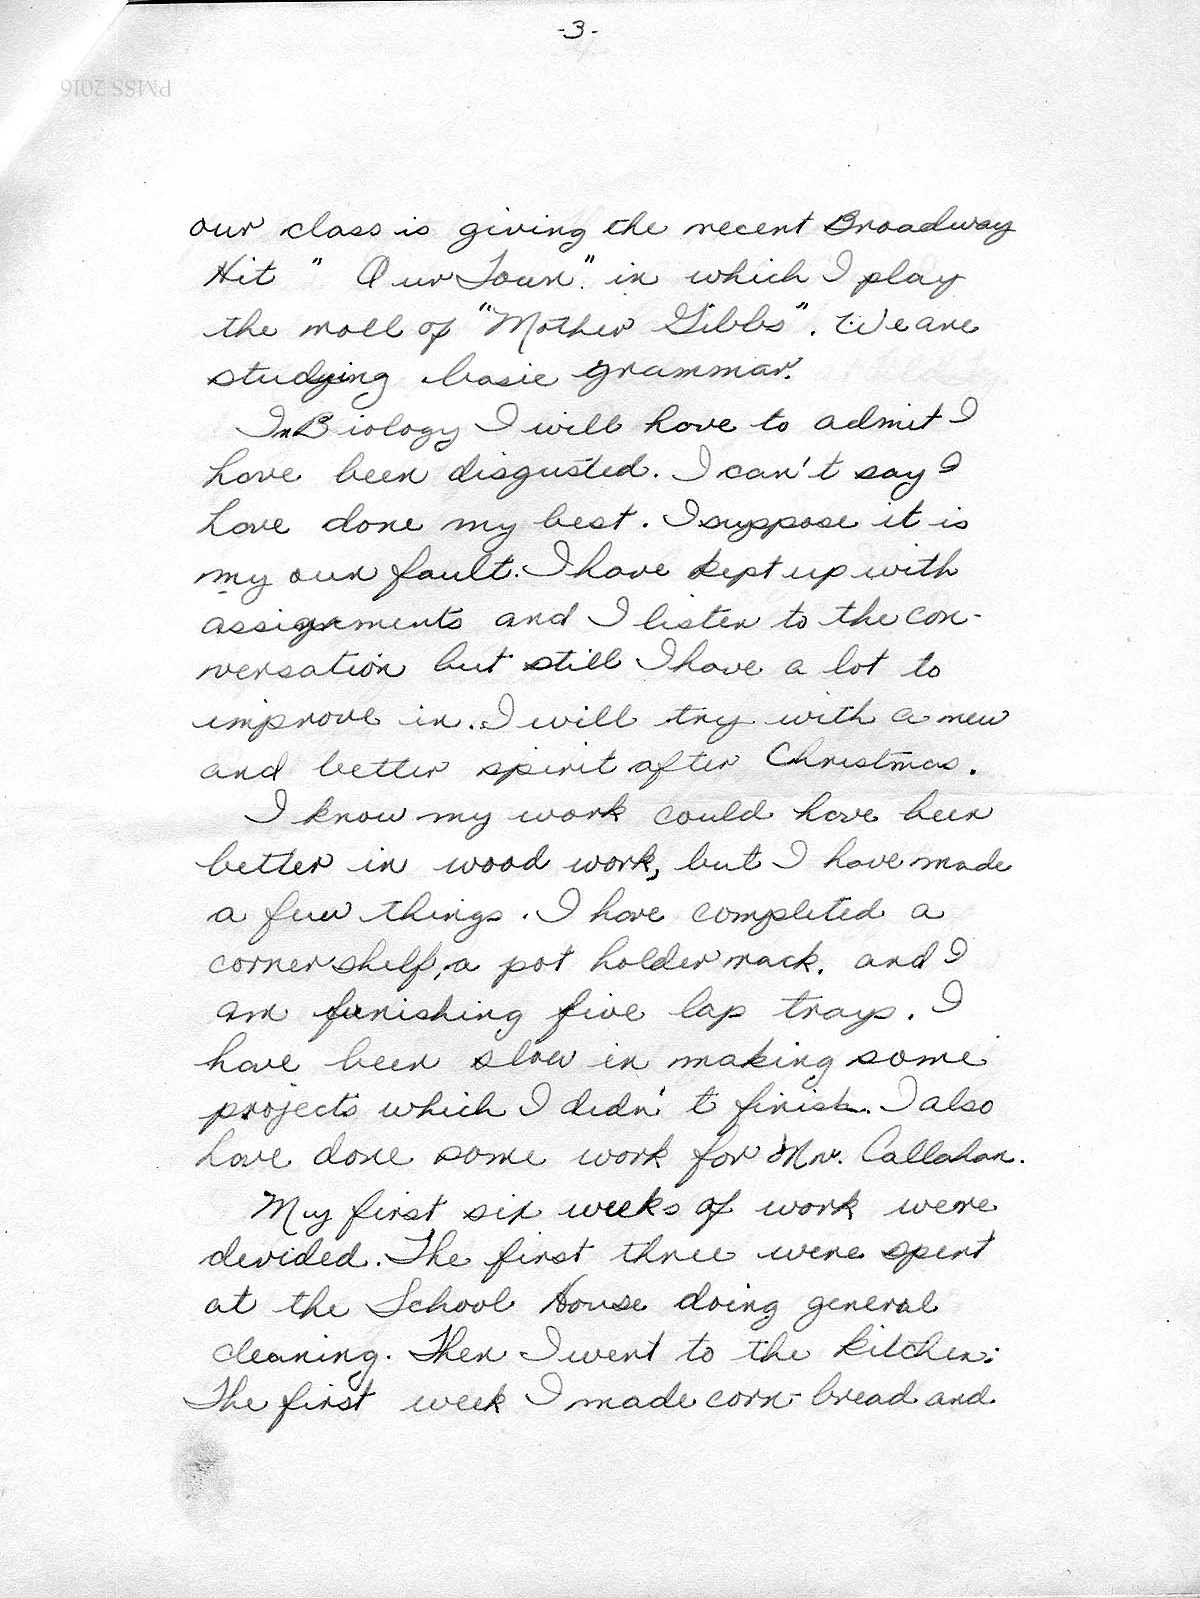 -3-
PMSS 2016
our class is giving the recent Broadway
Hit " Our Town." in which I play
the roll of "Mother Gibbs". We are
studying basic grammar.
In Biology I will have to admit I
have been disgusted. I can't say I
have done my best. I suppose it is
my own fault. I have kept up with
assignments and I listen to the con-
versation but still I have a lot to
improve in. I will try with a new
and better spirit after Christmas.
I know my work could have been
better in wood work, but I have made
a few things. I have completed a
corner shelf, a pot holder rack. and I
am funishing five lap trays. I
have been slow in making some
projects which I didn't finish. I also
have done some work for Mr. Callahan.
My first six weeks of work were
devided. The first three were spent
at the School House doing general
cleaning. Then I went to the kitchen:
The first week I made corn-bread and